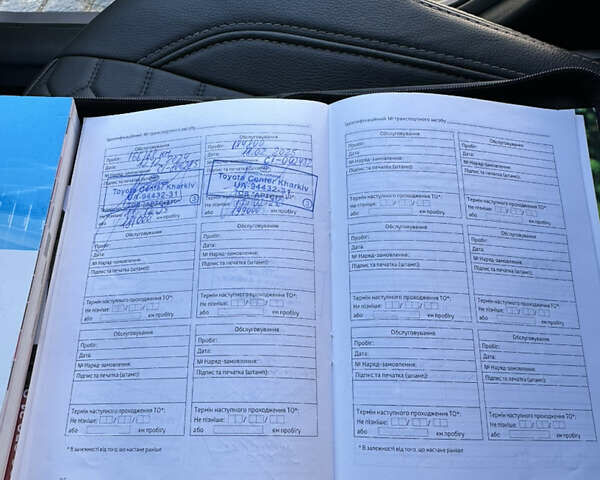 Ідентифікаційний № транспортного засобу
Обслуговування
Пробіг:
Дата:
Toyota Center Kharkiv
UA-94432-31
Не пізніше:
або км пробігу
Обслуговування
Пробіг: 184200
18.02.2025
Toyota Center Kharkiv
UA-94432-31
Не пізніше:
або 194000 км пробігу
Обслуговування
Пробіг:
Дата:
№ Наряд-замовлення:
Підпис та печатка (штамп):
Термін наступного проходження ТО*:
Не пізніше:
або км пробігу
Обслуговування
Пробіг:
Дата:
№ Наряд-замовлення:
Підпис та печатка (штамп):
Термін наступного проходження ТО*:
Не пізніше:
або км пробігу
Обслуговування
Пробіг:
Дата:
№ Наряд-замовлення:
Підпис та печатка (штамп):
Термін наступного проходження ТО*:
Не пізніше:
або км пробігу
Обслуговування
Пробіг:
Дата:
№ Наряд-замовлення:
Підпис та печатка (штамп):
Термін наступного проходження ТО*:
Не пізніше:
або км пробігу
* В залежності від того, що настане раніше
Ідентифікаційний № транспортного засобу
Обслуговування
Пробіг:
Дата:
№ Наряд-замовлення:
Підпис та печатка (штамп):
Термін наступного проходження ТО*:
Не пізніше:
або км пробігу
Обслуговування
Пробіг:
Дата:
№ Наряд-замовлення:
Підпис та печатка (штамп):
Термін наступного проходження ТО*:
Не пізніше:
або км пробігу
Обслуговування
Пробіг:
Дата:
№ Наряд-замовлення:
Підпис та печатка (штамп):
Термін наступного проходження ТО*:
Не пізніше:
або км пробігу
Обслуговування
Пробіг:
Дата:
№ Наряд-замовлення:
Підпис та печатка (штамп):
Термін наступного проходження ТО*:
Не пізніше:
або км пробігу
Обслуговування
Пробіг:
Дата:
№ Наряд-замовлення:
Підпис та печатка (штамп):
Термін наступного проходження ТО*:
Не пізніше:
або км пробігу
Обслуговування
Пробіг:
Дата:
№ Наряд-замовлення:
Підпис та печатка (штамп):
Термін наступного проходження ТО*:
Не пізніше:
або км пробігу
* В залежності від того, що настане раніше